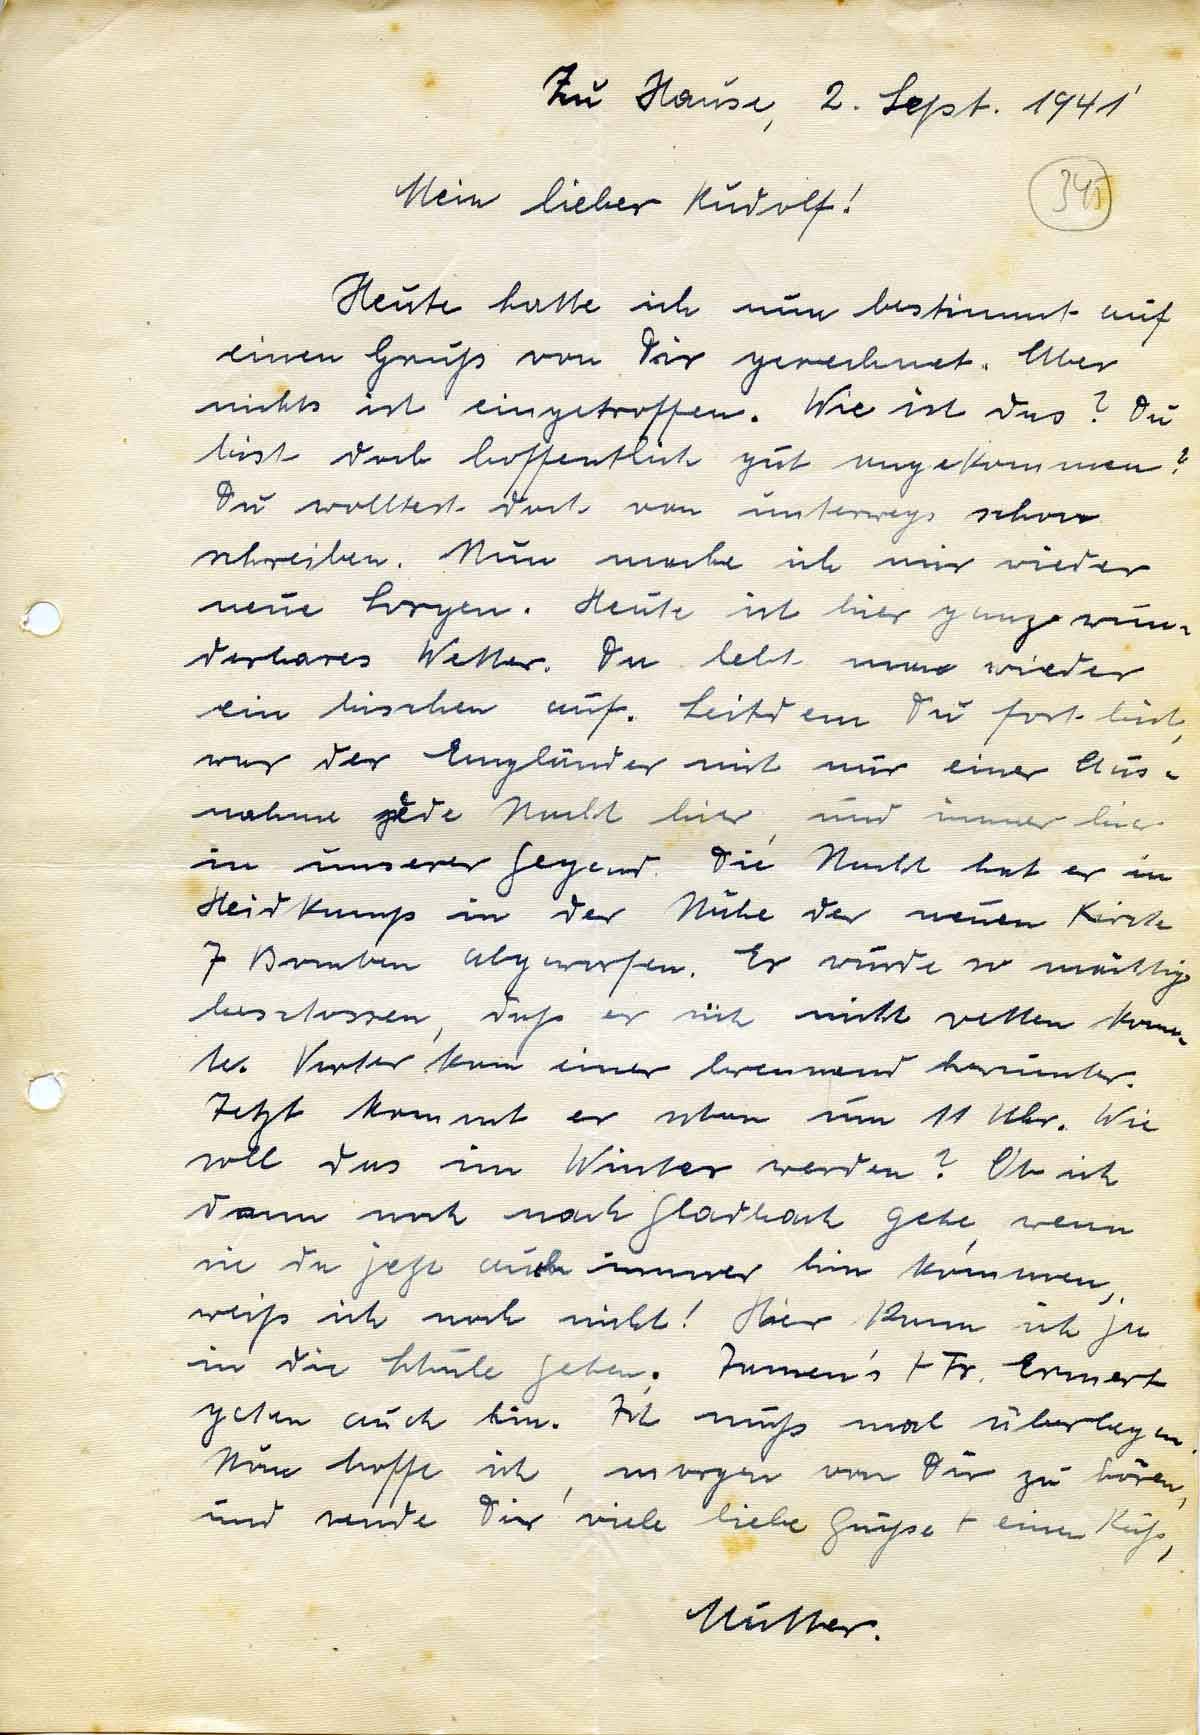 Zu Hause, 2. Sept. 1941
345
Mein lieber Rudolf!
Heute hatte ich nun bestimmt auf
einen Gruß von Dir gerechnet. Aber
nichts ist eingetroffen. Wie ist das? Du
bist doch hoffentlich gut angekommen?
Du wolltest doch von unterwegs schon
schreiben. Nun mache ich mir wieder
neue Sorgen. Heute ist hier ganz wun-
derbares Wetter. Da lebt man wieder
ein bischen auf. Seitdem Du fort bist,
war der Engländer mit nur einer Aus-
nahme jede Nacht hier, und immer hier
in unserer Gegend. Die Nacht hat er in
Heidkamp in der Nähe der neuen Kirche
7 Bomben abgeworfen. Er wurde so mächtig
beschossen, daß er sich nicht retten konn-
te. Weiter kam einer brennend herunter.
Jetzt kommt er schon um 11 Uhr. Wie
soll das im Winter werden? Ob ich
dann noch nach Gladbach gehe, wenn
sie da jetzt auch immer hin kommen,
weiß ich noch nicht! Hier kann ich ja
in die Schule gehen. + Fr. Ermert
gehen auch hin. Ich muß mal überlegen.
Nun hoffe ich, morgen von Dir zu hören,
und sende Dir viele liebe Grüße + einen Kuß,
Mutter.